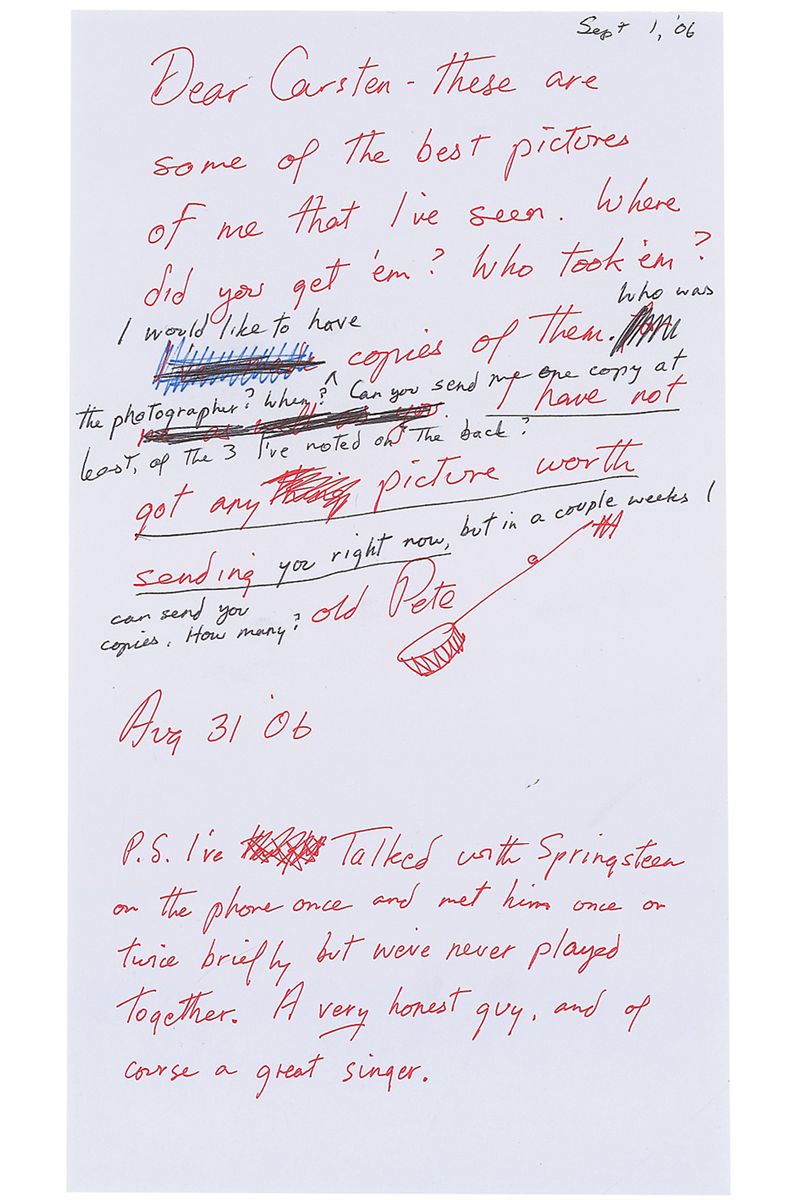 Sept 1, '06
Dear Carsten - these are
some of the best pictures
of me that I've seen. Where
did you get 'em? Who took 'em?
I would like to have
copies of them. Who was
the photographer? When? Can you send me one copy at
least, of the 3 I've noted on the back?
I have not
got any picture worth
sending you right now, but in a couple weeks I
can send you
copies. How many?
old Pete
Aug 31 '06
P.S. I've Talked with Springsteen
on the phone once and met him once or
twice briefly but we've never played
together. A very honest guy, and of
course a great singer.